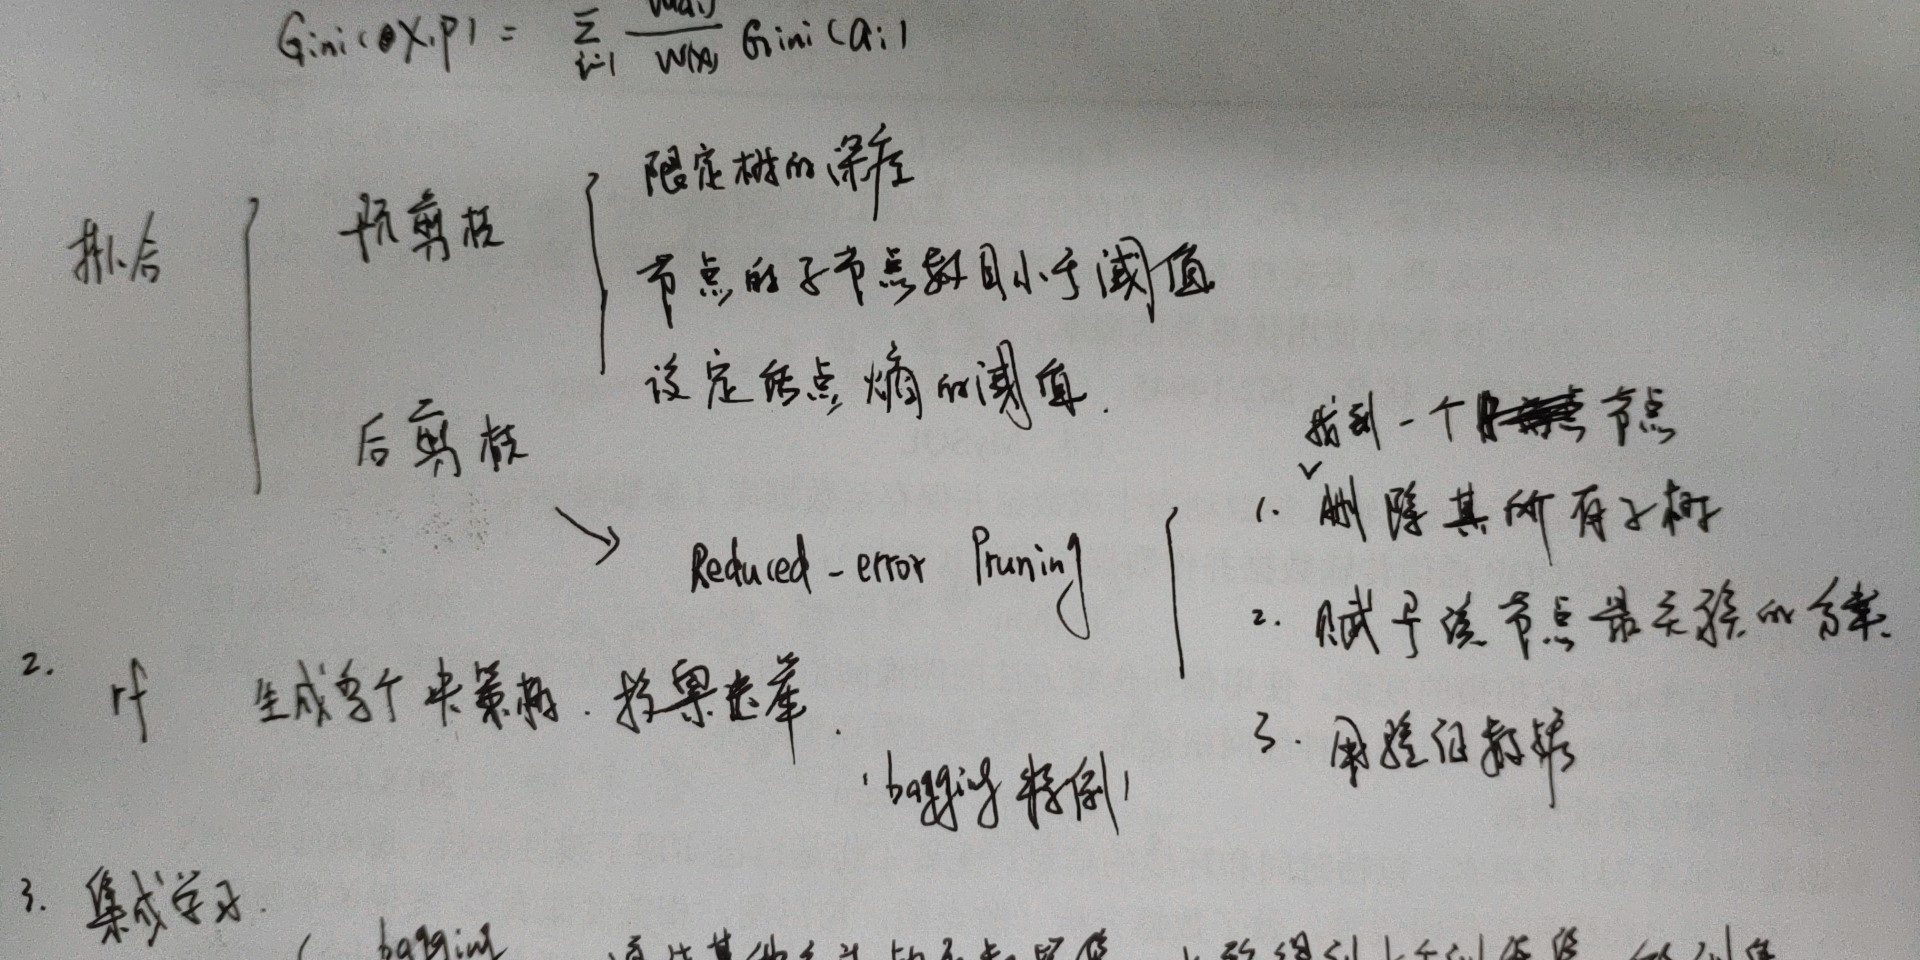 Gini(X,P) = Σ i=1 W(ai)/W(X) Gini(ai)
拟合
预剪枝
限定树的深度
节点的子节点数目小于阈值
设定结点熵的阈值.
后剪枝
Reduced-error Pruning
找到一个节点
1. 删除其所有子树
2. 赋予该节点最关联的分类.
3. 用验证数据
2. rf 生成多个决策树. 投票选举.
(bagging 特例)
3. 集成学习.
bagging